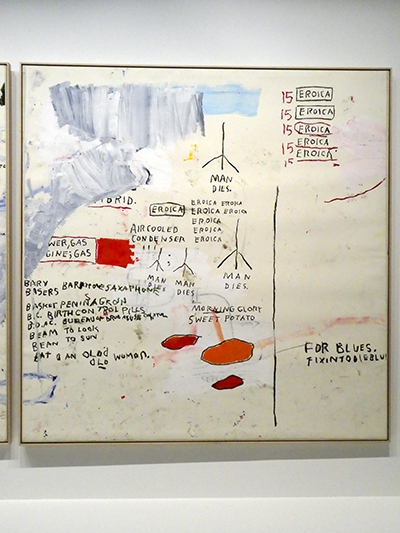 15 EROICA
15 EROICA
15 EROICA
15 EROICA
15 EROICA
MAN
DIES.
BRID.
EROICA
EROICA EROICA
EROICA EROICA
EROICA
EROICA
EROICA
AIR COOLED
CONDENSER
WER, GAS
GINE; GAS
MAN
DIES
MAN
DIES
MAN
DIES.
BARY
BASERS BARITONE SAXAPHONE
BASKET PENIN
B.C. BIRTH CONTROL PILLS
BEAM TO LOOK
BEAN TO SUN
EAT
OLD WOMAN.
MORNING GLORY
SWEET POTATO
FOR BLUES.
FIXINTODIEBLU